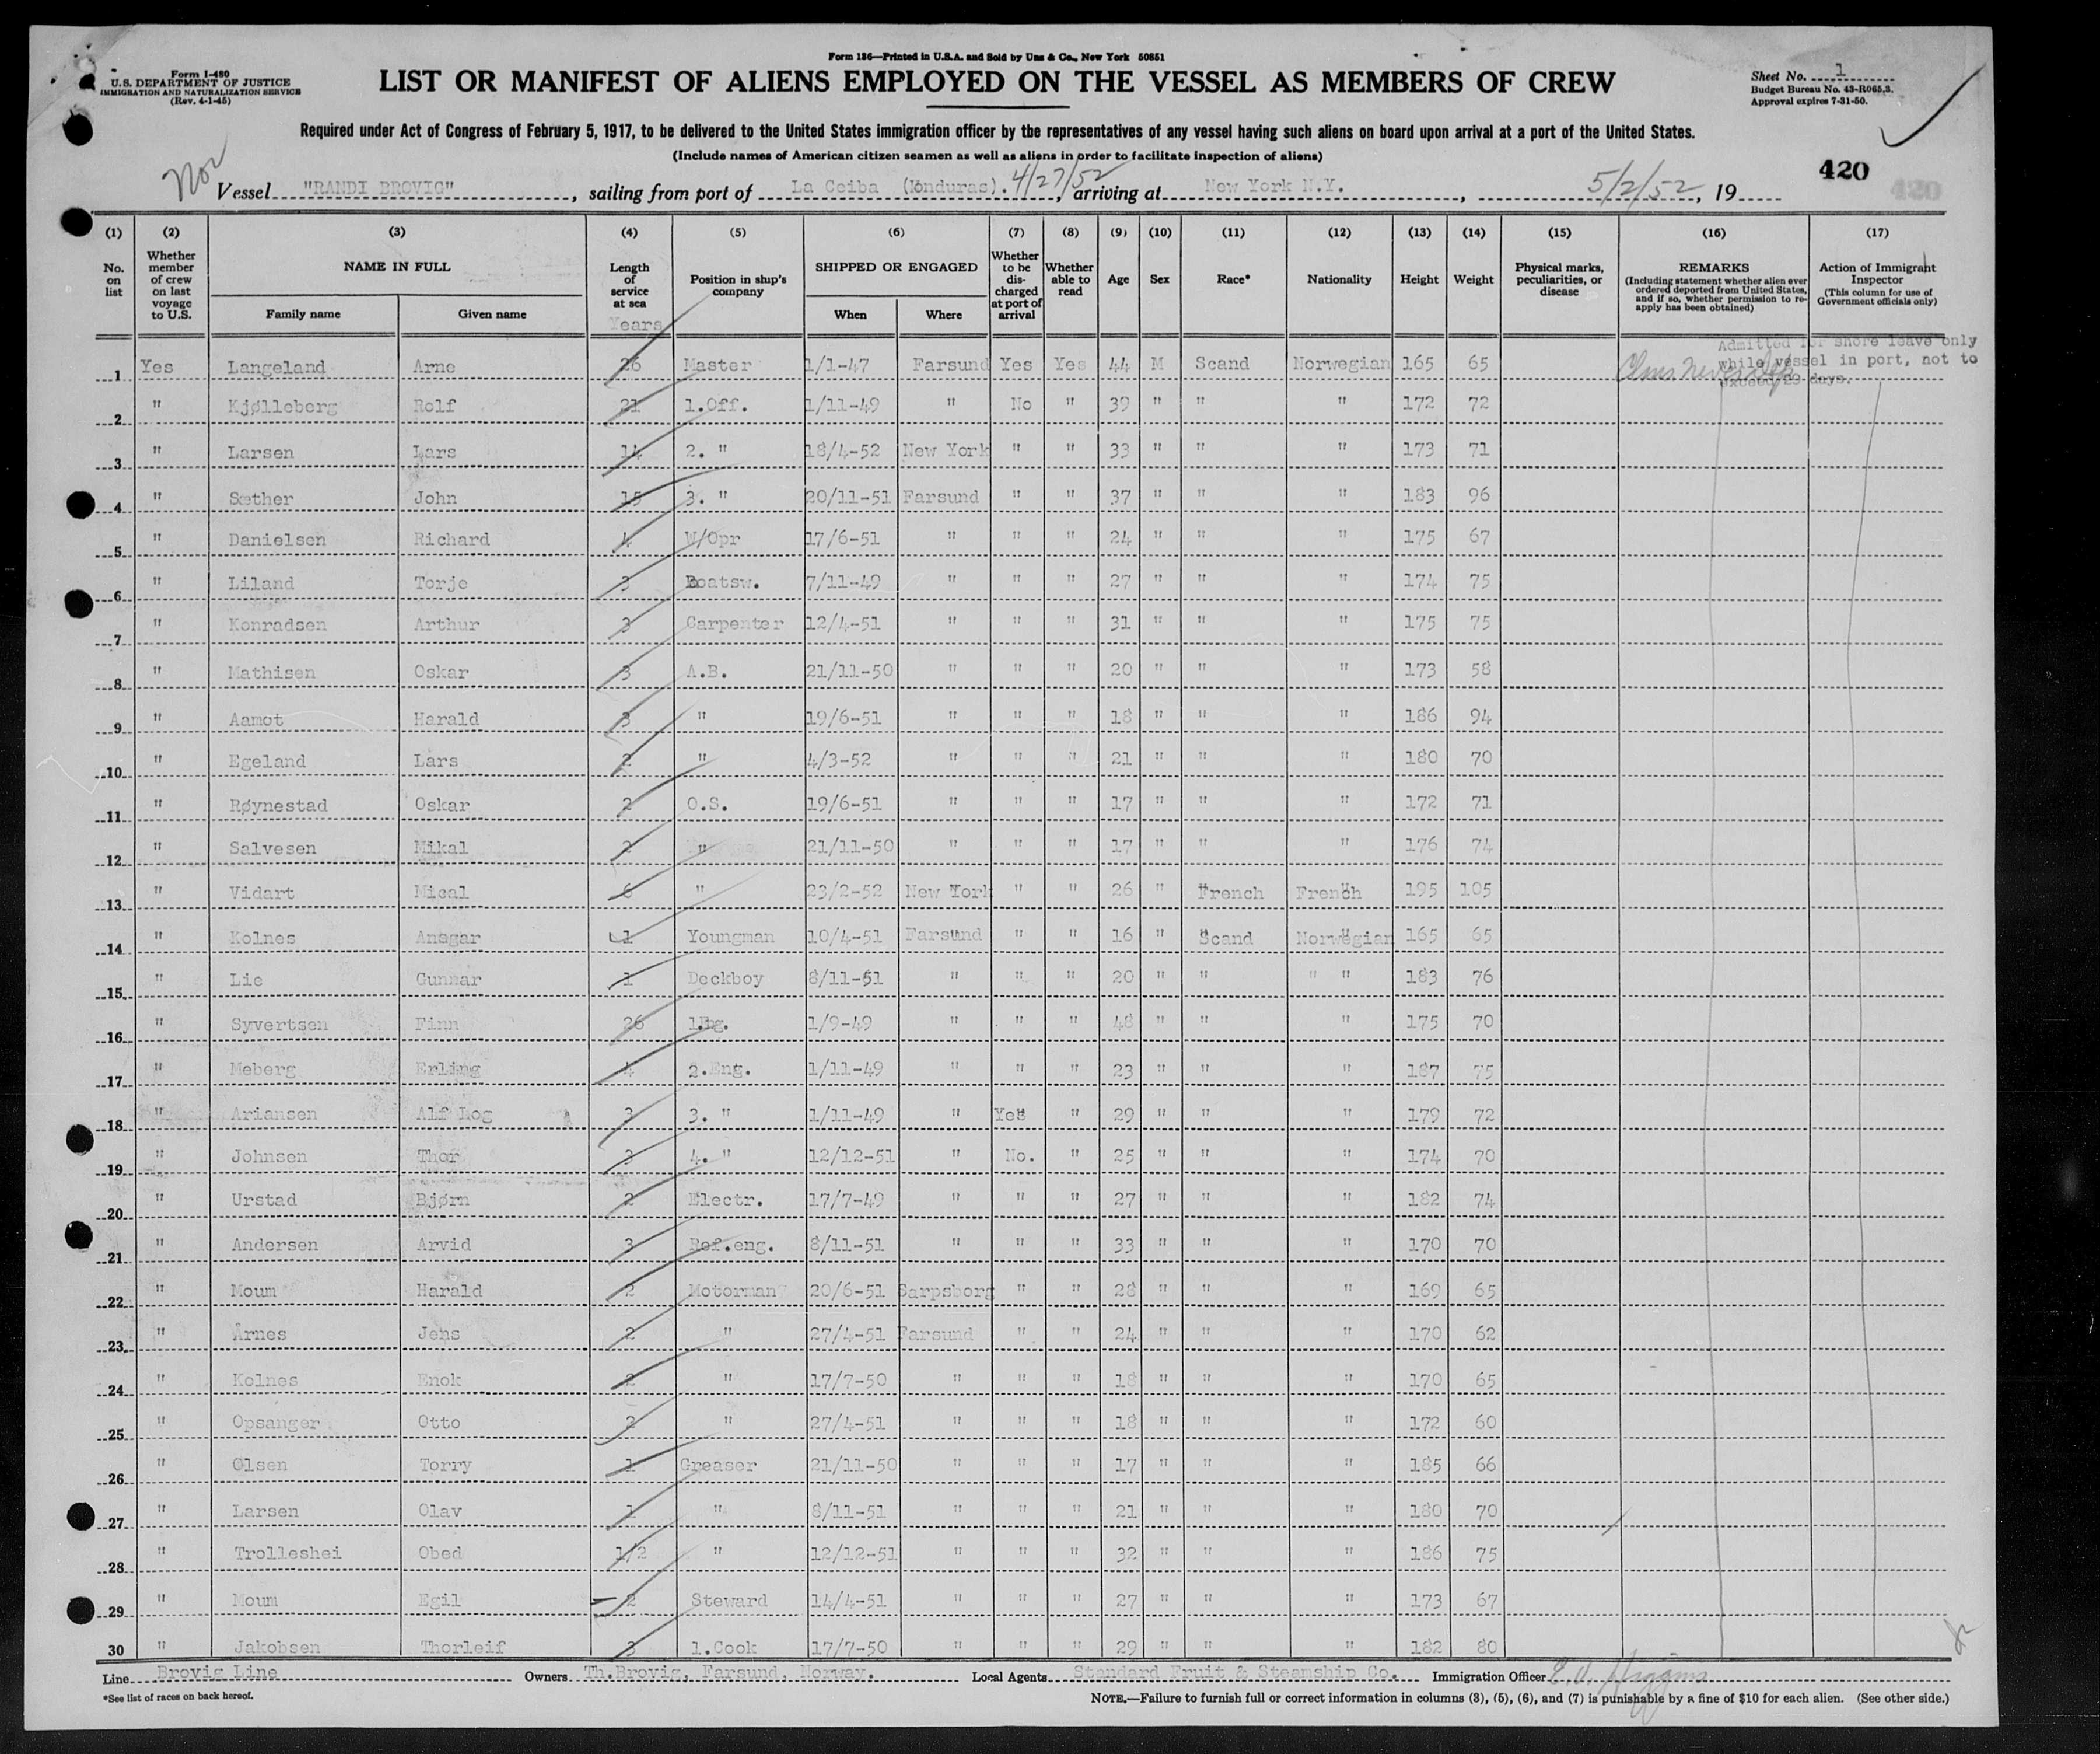 Form 136—Printed in U.S.A. and Sold by Unz & Co., New York 50851
Form I-480
U.S. DEPARTMENT OF JUSTICE
IMMIGRATION AND NATURALIZATION SERVICE
(Rev. 4-1-45)
LIST OR MANIFEST OF ALIENS EMPLOYED ON THE VESSEL AS MEMBERS OF CREW
Sheet No. 1
Budget Bureau No. 43-R065.3.
Approval expires 7-31-50.
Required under Act of Congress of February 5, 1917, to be delivered to the United States immigration officer by the representatives of any vessel having such aliens on board upon arrival at a port of the United States.
(Include names of American citizen seamen as well as aliens in order to facilitate inspection of aliens)
420
Nor Vessel "RANDI BROVIG", sailing from port of La Ceiba (Honduras). 4/27/52, arriving at New York N.Y., 5/2/52, 19
(1) (2) (3) (4) (5) (6) (7) (8) (9) (10) (11) (12) (13) (14) (15) (16) (17)
No. on list
Whether member of crew on last voyage to U.S.
NAME IN FULL
Family name Given name
Length of service at sea
Years
Position in ship's company
SHIPPED OR ENGAGED
When Where
Whether to be discharged at port of arrival
Whether able to read
Age Sex Race* Nationality Height Weight
Physical marks, peculiarities, or disease
REMARKS
(Including statement whether alien ever ordered deported from United States, and if so, whether permission to re-apply has been obtained)
Action of Immigrant Inspector
(This column for use of Government officials only)
Admitted for shore leave only
while vessel in port, not to
exceed 29 days.
1 Yes Langeland Arne 26 Master 1/1-47 Farsund Yes Yes 44 M Scand Norwegian 165 65
2 " Kjølleberg Rolf 21 1.Off. 1/11-49 " No " 39 " " " 172 72
3 " Larsen Lars 14 2. " 18/4-52 New York " " 33 " " " 173 71
4 " Sæther John 15 3. " 20/11-51 Farsund " " 37 " " " 183 96
5 " Danielsen Richard 4 W/Opr 17/6-51 " " " 24 " " " 175 67
6 " Liland Torje 3 Boatsw. 7/11-49 " " " 27 " " " 174 75
7 " Konradsen Arthur 3 Carpenter 12/4-51 " " " 31 " " " 175 75
8 " Mathisen Oskar 3 A.B. 21/11-50 " " " 20 " " " 173 58
9 " Aamot Harald 3 " 19/6-51 " " " 18 " " " 186 94
10 " Egeland Lars 2 " 4/3-52 " " " 21 " " " 180 70
11 " Røynestad Oskar 2 O.S. 19/6-51 " " " 17 " " " 172 71
12 " Salvesen Mikal 2 " 21/11-50 " " " 17 " " " 176 74
13 " Vidart Mical 6 " 23/2-52 New York " " 26 " French French 195 105
14 " Kolnes Ansgar 1 Youngman 10/4-51 Farsund " " 16 " Scand Norwegian 165 65
15 " Lie Gunnar 1 Deckboy 8/11-51 " " " 20 " " " " 183 76
16 " Syvertsen Finn 26 1.Eng. 1/9-49 " " " 48 " " " 175 70
17 " Meberg Erling 4 2.Eng. 1/11-49 " " " 23 " " " 187 75
18 " Ariansen Alf Log 3 3. " 1/11-49 " Yes " 29 " " " 179 72
19 " Johnsen Thor 3 4. " 12/12-51 " No. " 25 " " " 174 70
20 " Urstad Bjørn 2 Electr. 17/7-49 " " " 27 " " " 182 74
21 " Andersen Arvid 3 Ref.eng. 8/11-51 " " " 33 " " " 170 70
22 " Moum Harald 2 Motorman 20/6-51 Sarpsborg " " 28 " " " 169 65
23 " Årnes Jens 2 " 27/4-51 Farsund " " 24 " " " 170 62
24 " Kolnes Enok 2 " 17/7-50 " " " 18 " " " 170 65
25 " Opsanger Otto 2 " 27/4-51 " " " 18 " " " 172 60
26 " Olsen Torry 1 Greaser 21/11-50 " " " 17 " " " 185 66
27 " Larsen Olav 1 " 8/11-51 " " " 21 " " " 180 70
28 " Trolleshei Obed 1/2 " 12/12-51 " " " 32 " " " 186 75
29 " Moum Egil 2 Steward 14/4-51 " " " 27 " " " 173 67
30 " Jakobsen Thorleif 3 1.Cook 17/7-50 " " " 29 " " " 182 80
Line Brovig Line Owners Th.Brovig, Farsund, Norway. Local Agents Standard Fruit & Steamship Co. Immigration Officer E. J. Higgins
*See list of races on back hereof.
NOTE.—Failure to furnish full or correct information in columns (3), (5), (6), and (7) is punishable by a fine of $10 for each alien. (See other side.)